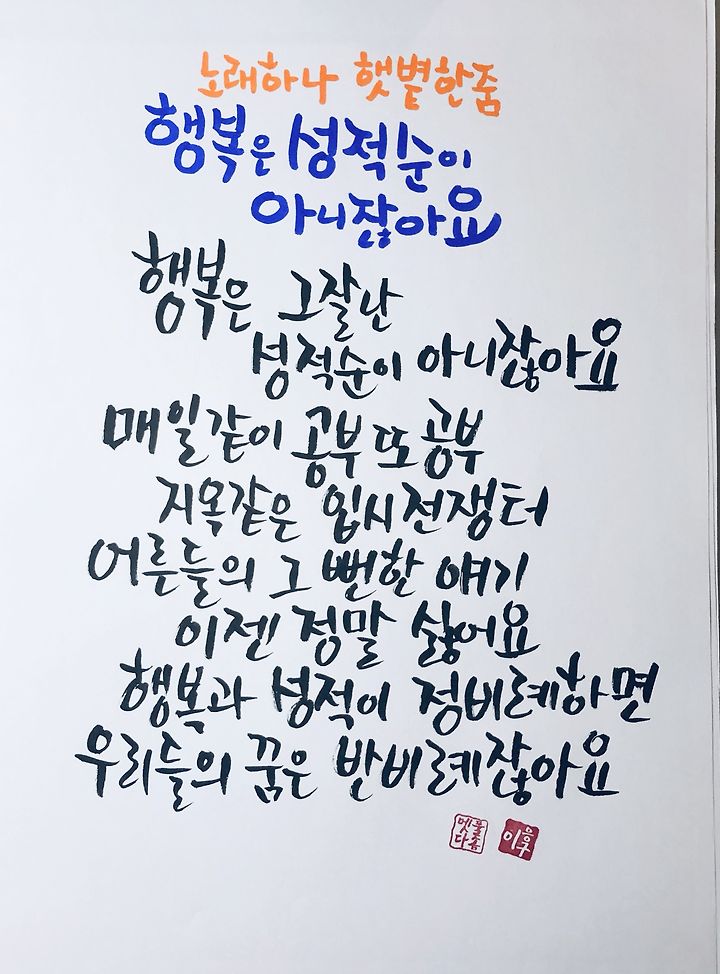 노래하나 햇볕한줌
행복은 성적순이
아니잖아요
행복은 그잘난
성적순이 아니잖아요
매일같이 공부 또 공부
지옥같은 입시전쟁터
어른들의 그 뻔한 얘기
이젠 정말 싫어요
행복과 성적이 정비례하면
우리들의 꿈은 반비례잖아요